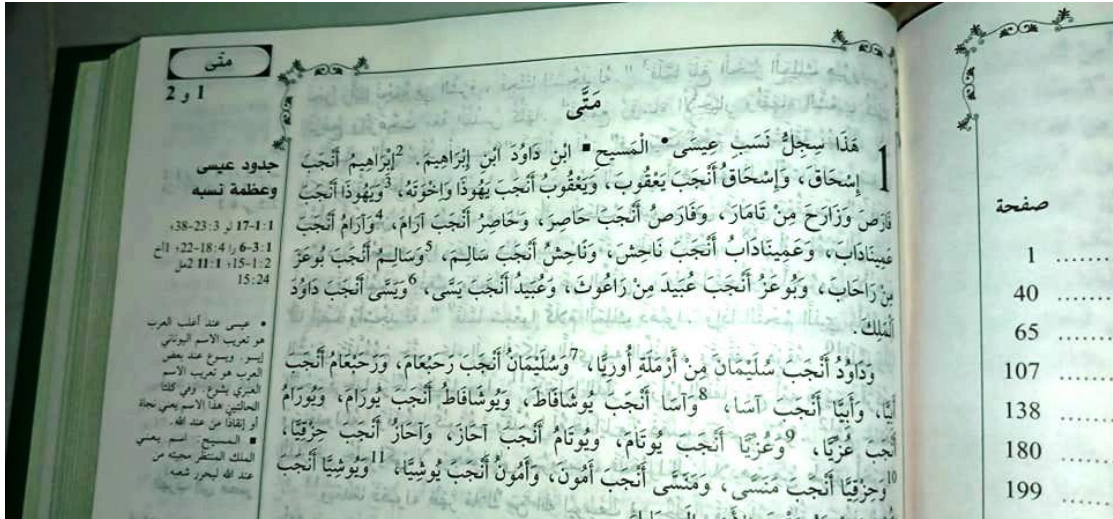 متى
1 و 2
مَتَّى
1 هَذَا سِجِلُّ نَسَبِ عِيسَى • الْمَسِيحِ ■ ابْنِ دَاوُدَ ابْنِ إِبْرَاهِيمَ. 2إِبْرَاهِيمُ أَنْجَبَ
إِسْحَاقَ، وَإِسْحَاقُ أَنْجَبَ يَعْقُوبَ، وَيَعْقُوبُ أَنْجَبَ يَهُوذَا وَإِخْوَتَهُ، 3وَيَهُوذَا أَنْجَبَ
فَارَصَ وَزَارَحَ مِنْ تَامَارَ، وَفَارَصُ أَنْجَبَ حَاصِرَ، وَحَاصِرُ أَنْجَبَ آرَامَ، 4وَآرَامُ أَنْجَبَ
عَمِينَادَابَ، وَعَمِينَادَابُ أَنْجَبَ نَاحِشَ، وَنَاحِشُ أَنْجَبَ سَالِمَ، 5وَسَالِمُ أَنْجَبَ بُوعَزَ
مِنْ رَاحَابَ، وَبُوعَزُ أَنْجَبَ عُبَيْدَ مِنْ رَاعُوثَ، وَعُبَيْدُ أَنْجَبَ يَسَّى، 6وَيَسَّى أَنْجَبَ دَاوُدَ
الْمَلِكَ.
وَدَاوُدُ أَنْجَبَ سُلَيْمَانَ مِنْ أَرْمَلَةِ أُورِيَّا، 7وَسُلَيْمَانُ أَنْجَبَ رَحَبْعَامَ، وَرَحَبْعَامُ أَنْجَبَ
أَبِيَّا، وَأَبِيَّا أَنْجَبَ آسَا، 8وَآسَا أَنْجَبَ يُوشَافَاطَ، وَيُوشَافَاطُ أَنْجَبَ يُورَامَ، وَيُورَامُ
أَنْجَبَ عُزِّيَّا، 9وَعُزِّيَّا أَنْجَبَ يُوتَامَ، وَيُوتَامُ أَنْجَبَ آحَازَ، وَآحَازُ أَنْجَبَ حِزْقِيَّا،
10وَحِزْقِيَّا أَنْجَبَ مَنَسَّى، وَمَنَسَّى أَنْجَبَ أَمُونَ، وَأَمُونُ أَنْجَبَ يُوشِيَّا، 11وَيُوشِيَّا أَنْجَبَ
جدود عيسى
وعظمة نسبه
1:1-17 لو 3:23-38؛
1:3-6 را 4:18-22؛ 1أخ
2:1-15؛ 1:11 2مل
15:24
• عيسى عند أغلب العرب
هو تعريب الاسم اليوناني
إيسو. ويسوع عند بعض
العرب هو تعريب الاسم
العبري يشوع. وفي كلتا
الحالتين هذا الاسم يعني نجاة
أو إنقاذا من عند الله.
■ المسيح: اسم يعني
الملك المنتظر مجيئه من
عند الله ليحرر شعبه.
صفحة
1 ......
40 ......
65 ......
107 ......
138 ......
180 ......
199 ......